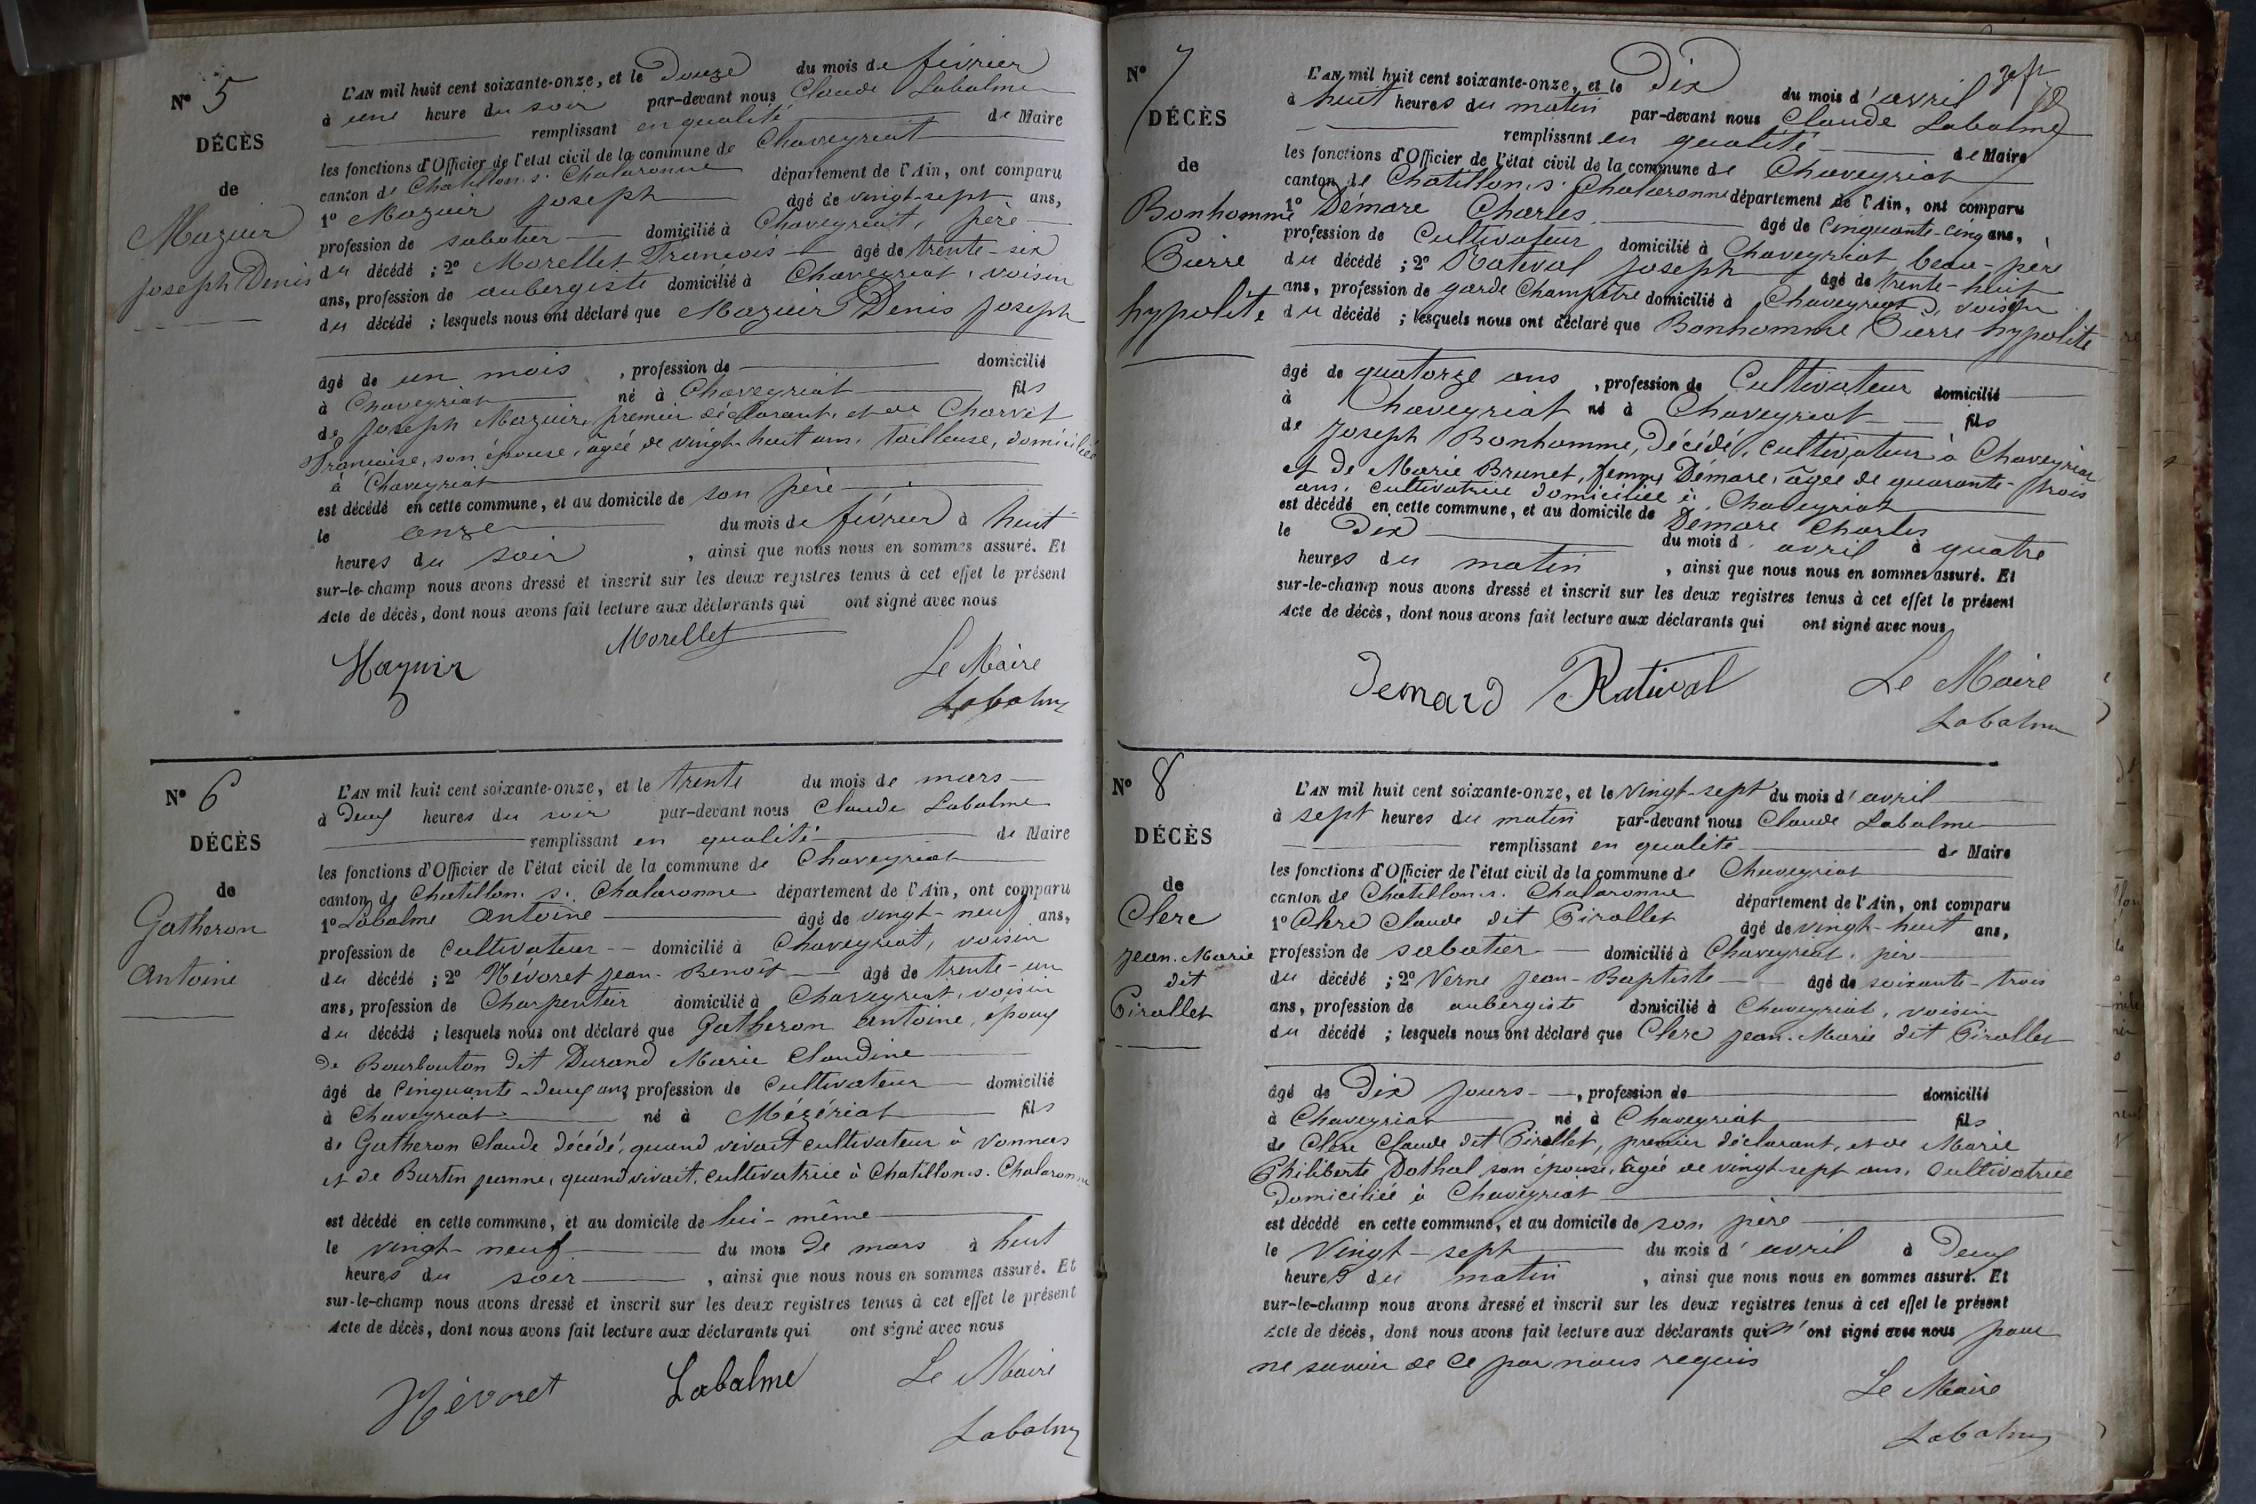 N° 5
DÉCÈS
de
Mazuir
Joseph Denis
L'AN mil huit cent soixante-onze, et le Douze du mois de février
à une heure du soir par-devant nous Claude Labalme
remplissant en qualité de Maire
les fonctions d'Officier de l'état civil de la commune de Chaveyriat
canton de Chatillon s. Chalaronne département de l'Ain, ont comparu
1° Mazuir Joseph âgé de vingt-sept ans,
profession de sabotier domicilié à Chaveyriat, père
du décédé ; 2° Morellet François âgé de trente-six
ans, profession de aubergiste domicilié à Chaveyriat, voisin
du décédé ; lesquels nous ont déclaré que Mazuir Denis Joseph
âgé de un mois , profession de domicilié
à Chaveyriat né à Chaveyriat fils
de Joseph Mazuir, premier déclarant, et de Charvet
Françoise, son épouse, âgée de vingt-huit ans, tailleuse, domiciliée
à Chaveyriat
est décédé en cette commune, et au domicile de son père
le onze du mois de février à huit
heures du soir , ainsi que nous nous en sommes assuré. Et
sur-le-champ nous avons dressé et inscrit sur les deux registres tenus à cet effet le présent
Acte de décès, dont nous avons fait lecture aux déclarants qui ont signé avec nous
Mazuir Morellet Le Maire
Labalme
N° 6
DÉCÈS
de
Gatheron
Antoine
L'AN mil huit cent soixante-onze, et le trente du mois de mars
à Deux heures du soir par-devant nous Claude Labalme
remplissant en qualité de Maire
les fonctions d'Officier de l'état civil de la commune de Chaveyriat
canton de Chatillon s. Chalaronne département de l'Ain, ont comparu
1° Labalme Antoine âgé de vingt-neuf ans,
profession de Cultivateur domicilié à Chaveyriat, voisin
du décédé ; 2° Névoret Jean-Benoît âgé de trente-un
ans, profession de Charpentier domicilié à Chaveyriat, voisin
du décédé ; lesquels nous ont déclaré que Gatheron Antoine, époux
de Bourbouton dit Durand Marie Claudine
âgé de Cinquante-deux ans profession de Cultivateur domicilié
à Chaveyriat né à Mézériat fils
de Gatheron Claude décédé, quand vivait cultivateur à Vonnas
et de Burtin Jeanne, quand vivait, cultivatrice à Chatillon s. Chalaronne
est décédé en cette commune, et au domicile de lui-même
le vingt-neuf du mois de mars à huit
heures du soir , ainsi que nous nous en sommes assuré. Et
sur-le-champ nous avons dressé et inscrit sur les deux registres tenus à cet effet le présent
Acte de décès, dont nous avons fait lecture aux déclarants qui ont signé avec nous
Névoret Labalme Le Maire
Labalme
N° 7
DÉCÈS
de
Bonhomme
Pierre
hypolite
L'AN mil huit cent soixante-onze, et le Dix du mois d'avril
à huit heures du matin par-devant nous Claude Labalme
remplissant en qualité de Maire
les fonctions d'Officier de l'état civil de la commune de Chaveyriat
canton de Chatillon s. Chalaronne département de l'Ain, ont comparu
1° Démare Charles âgé de Cinquante-cinq ans,
profession de Cultivateur domicilié à Chaveyriat, beau-père
du décédé ; 2° Rativał Joseph âgé de trente-huit
ans, profession de garde Champêtre domicilié à Chaveyriat, voisin
du décédé ; lesquels nous ont déclaré que Bonhomme Pierre hypolite
âgé de quatorze ans , profession de Cultivateur domicilié
à Chaveyriat né à Chaveyriat fils
de Joseph Bonhomme, Décédé, cultivateur à Chaveyriat
et de Marie Brunet, femme Démare, âgée de quarante-trois
ans, cultivatrice domiciliée à Chaveyriat
est décédé en cette commune, et au domicile de Démare Charles
le Dix du mois d'avril à quatre
heures du matin , ainsi que nous nous en sommes assuré. Et
sur-le-champ nous avons dressé et inscrit sur les deux registres tenus à cet effet le présent
Acte de décès, dont nous avons fait lecture aux déclarants qui ont signé avec nous
Demard Ratival Le Maire
Labalme
N° 8
DÉCÈS
de
Clerc
Jean-Marie
dit
Pirollet
L'AN mil huit cent soixante-onze, et le vingt-sept du mois d'avril
à sept heures du matin par-devant nous Claude Labalme
remplissant en qualité de Maire
les fonctions d'Officier de l'état civil de la commune de Chaveyriat
canton de Chatillon s. Chalaronne département de l'Ain, ont comparu
1° Clerc Claude dit Pirollet âgé de vingt-huit ans,
profession de sabotier domicilié à Chaveyriat, père
du décédé ; 2° Verne Jean-Baptiste âgé de soixante-trois
ans, profession de aubergiste domicilié à Chaveyriat, voisin
du décédé ; lesquels nous ont déclaré que Clerc Jean-Marie dit Pirollet
âgé de Dix jours , profession de domicilié
à Chaveyriat né à Chaveyriat fils
de Clerc Claude dit Pirollet, premier déclarant, et de Marie
Philiberte Dothal son épouse, âgée de vingt-sept ans, Cultivatrice
domiciliée à Chaveyriat
est décédé en cette commune, et au domicile de son père
le Vingt-sept du mois d'avril à Deux
heures du matin , ainsi que nous nous en sommes assuré. Et
sur-le-champ nous avons dressé et inscrit sur les deux registres tenus à cet effet le présent
Acte de décès, dont nous avons fait lecture aux déclarants qui n'ont signé avec nous pour
ne savoir de ce par nous requis
Le Maire
Labalme